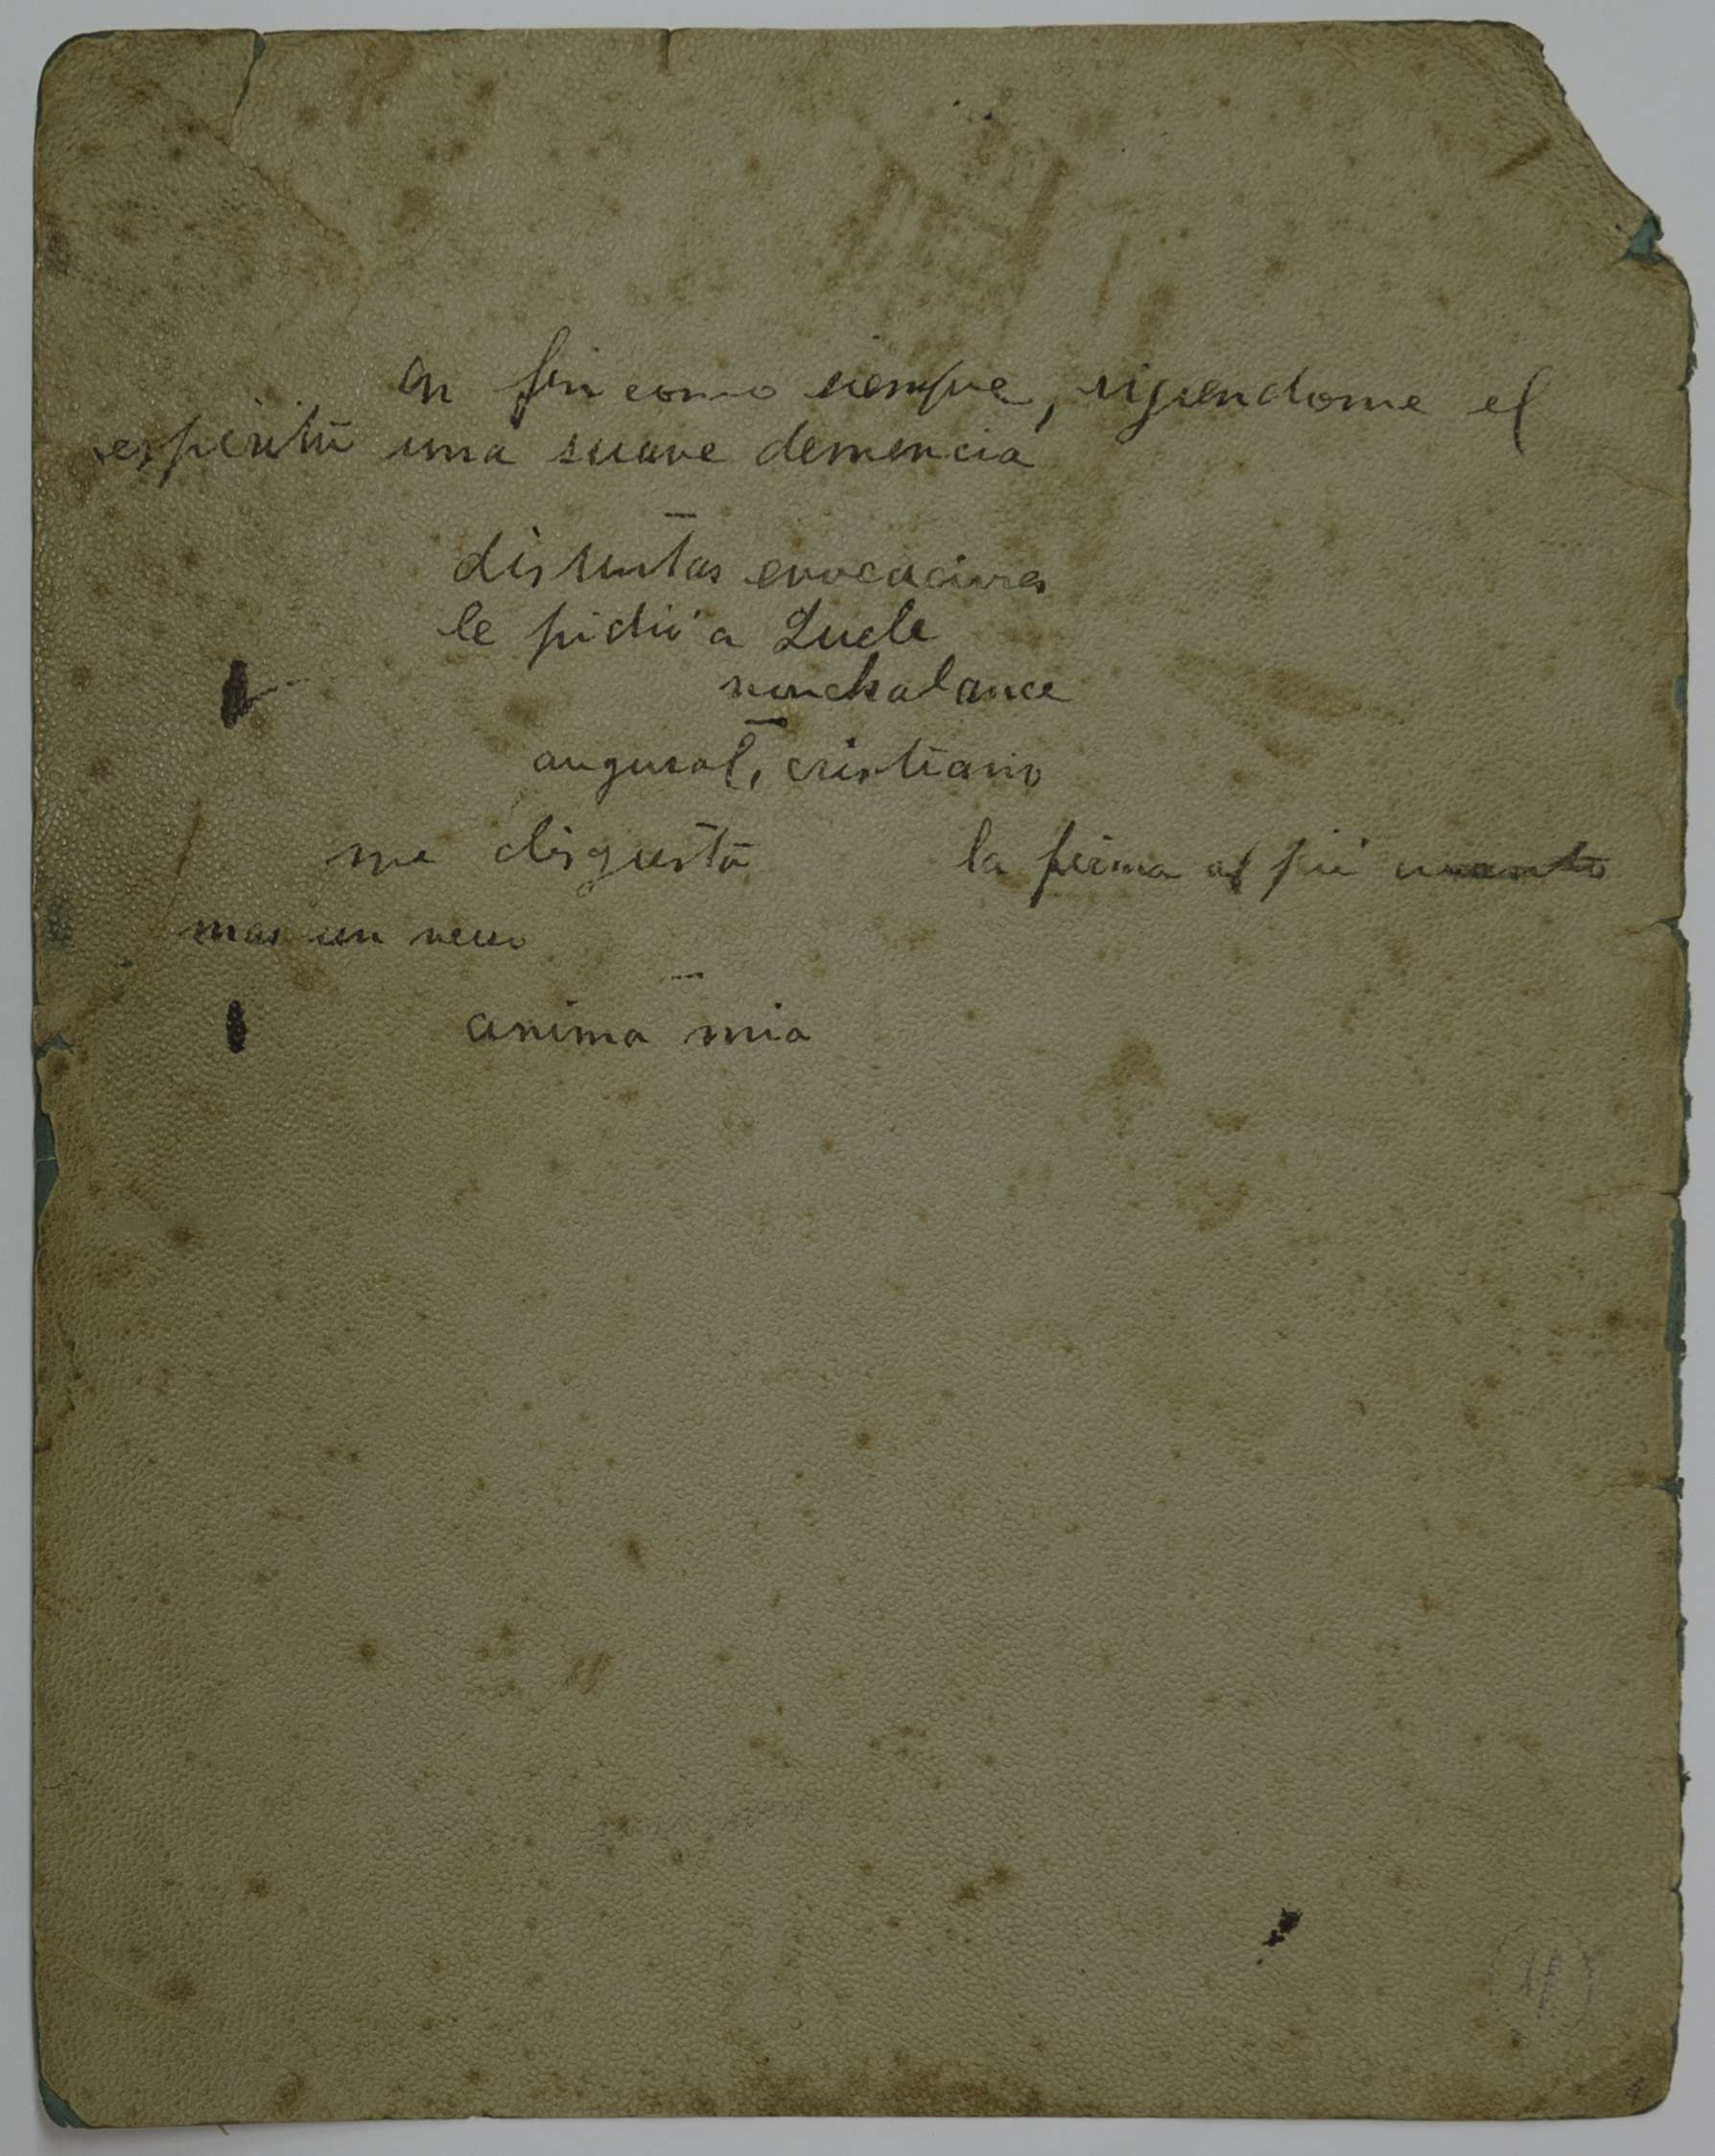 en fin como siempre, rigiendome el
espiritu una suave demencia
—
distintas evocaciones
le pidió a Lucle
nonchalance
—
augural, cristiano
me disgusta la firma al pié cuanto
mas un verso
—
anima mia